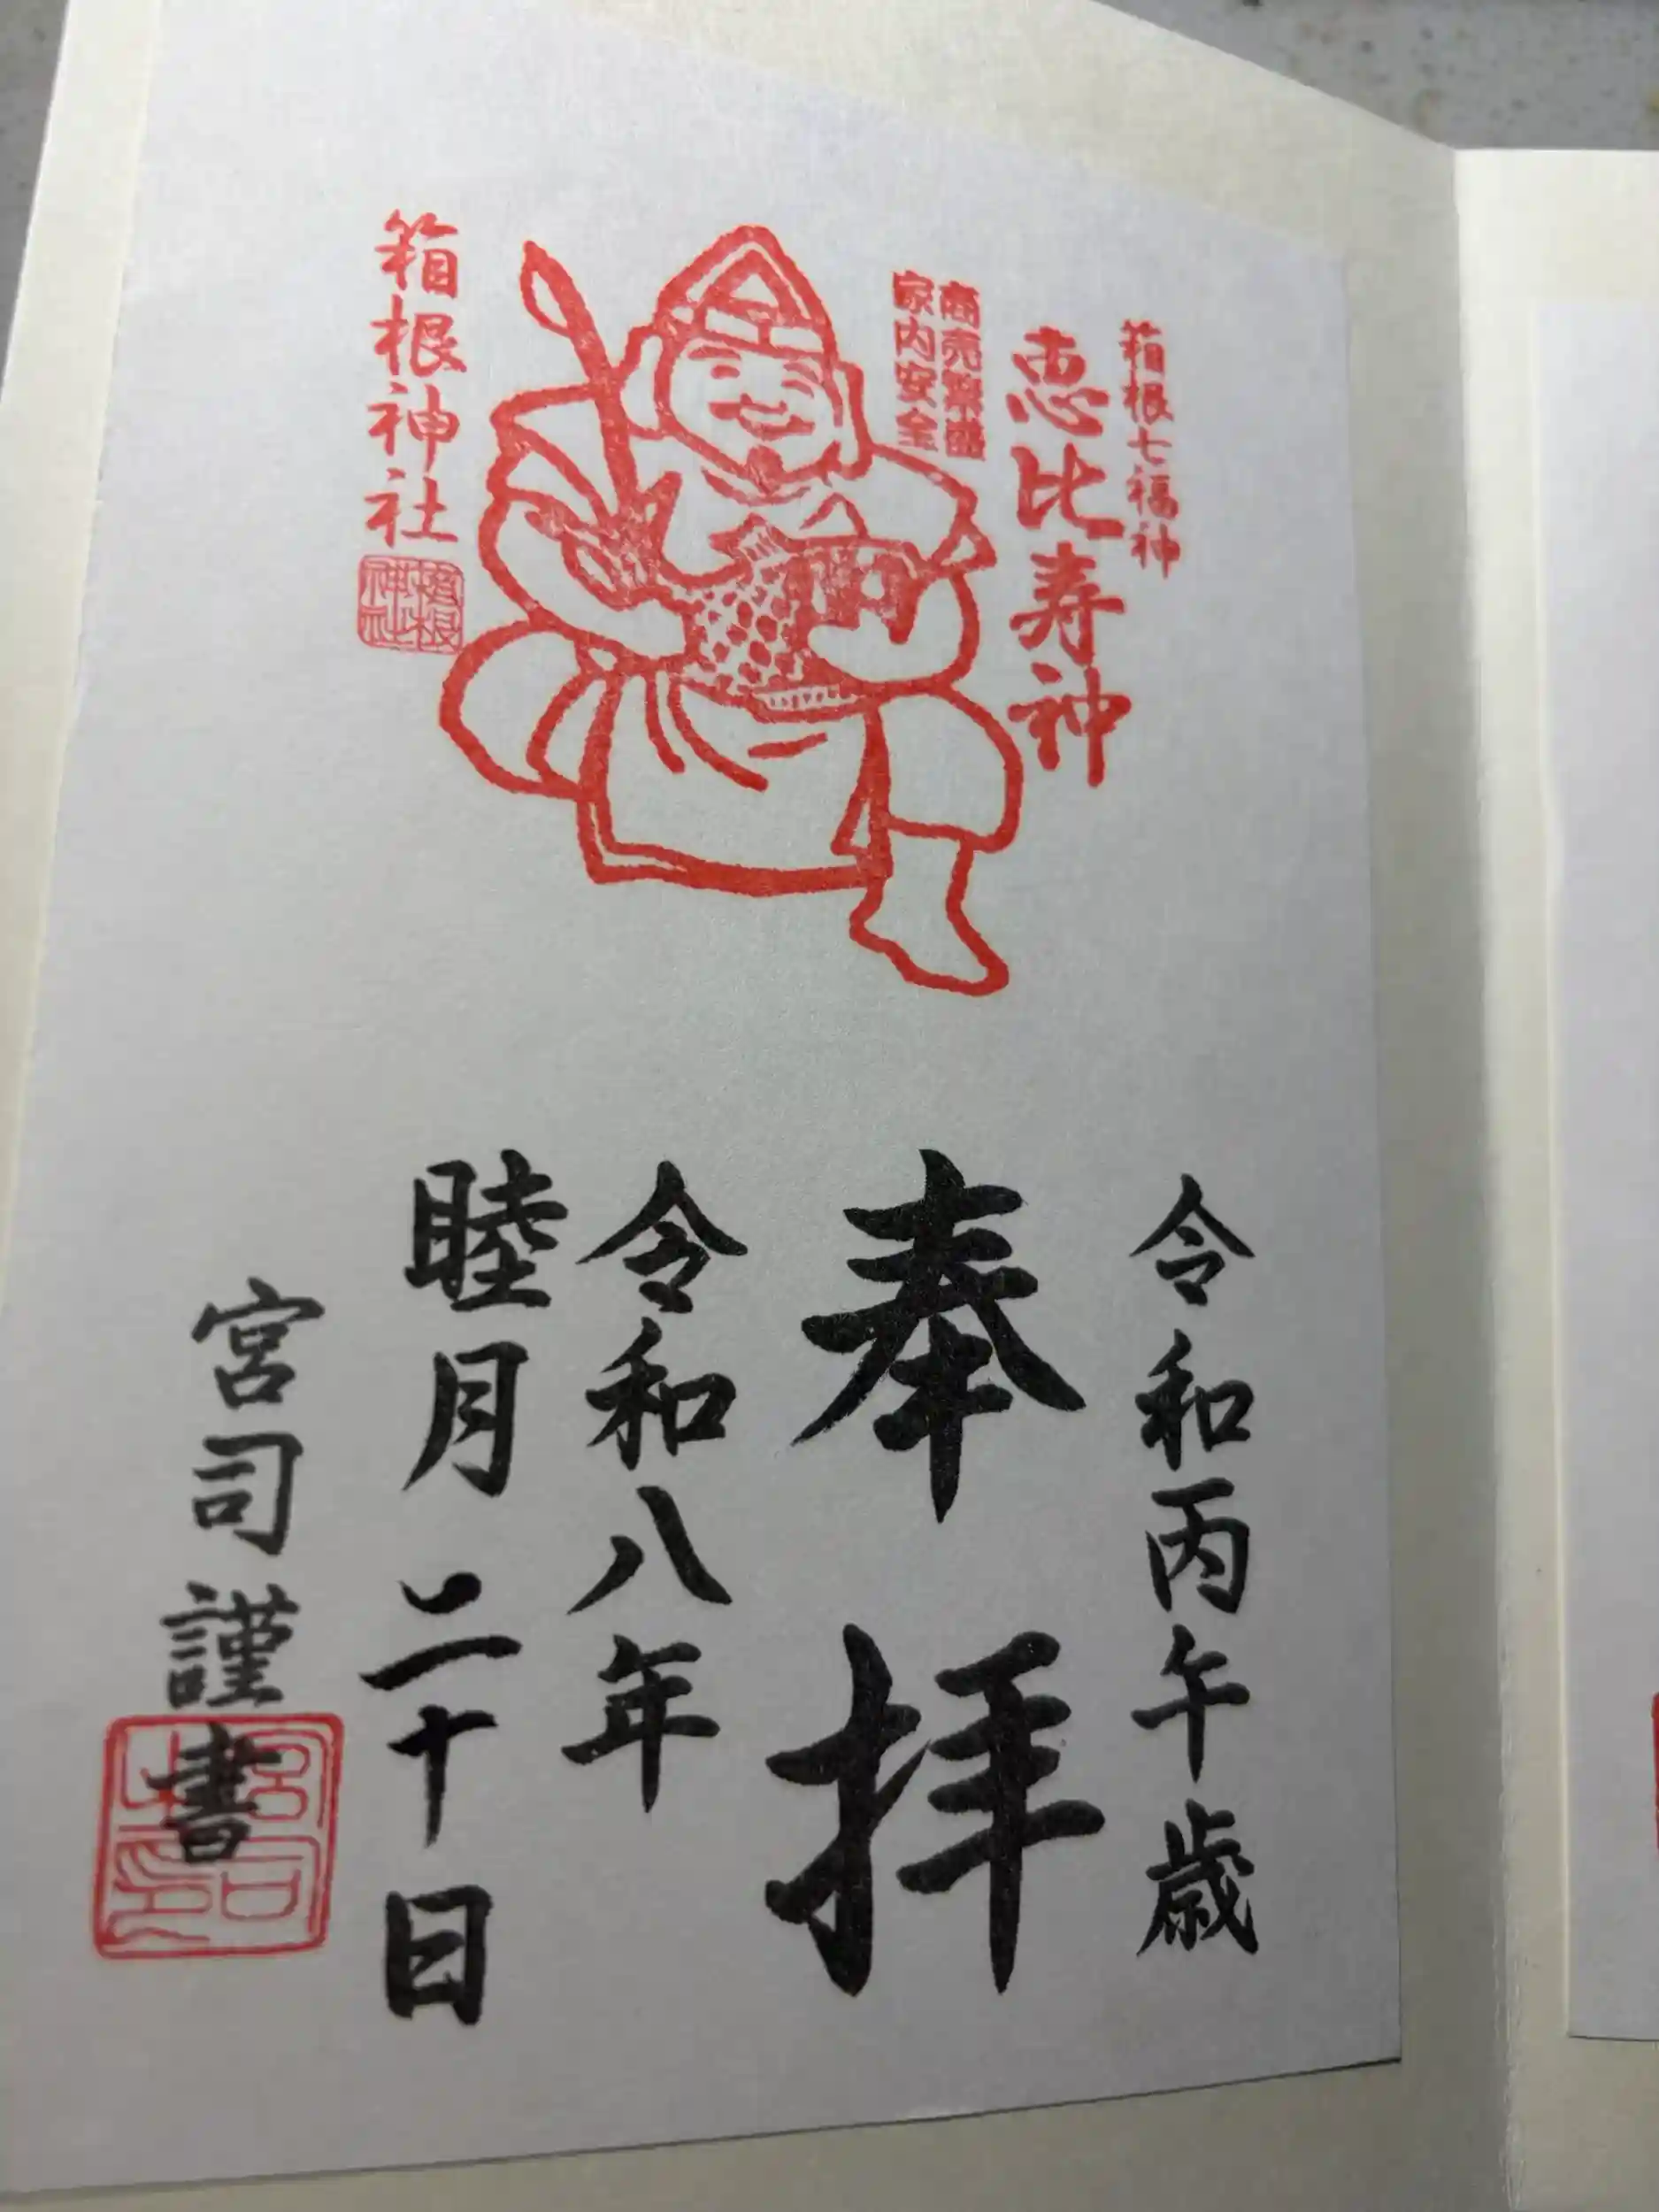 箱根七福神
恵比寿神
商売繁盛
家内安全
箱根神社
箱根
神社
令和丙午歳
奉拝
令和八年
睦月二十日
宮司謹書
宮司
之印